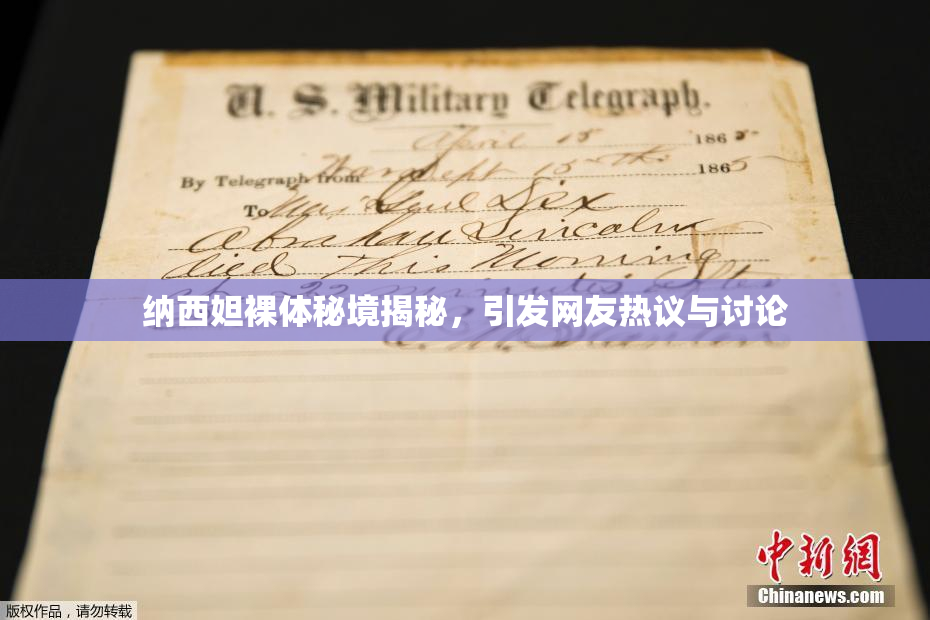 U. S. Military Telegraph.
April 15 1865
By Telegraph from War Dept 15th 1865
To Maj Genl Dix
Abraham Lincoln
died This Morning
at 22 minutes after
纳西妲裸体秘境揭秘，引发网友热议与讨论
E. M. Stanton
中新网
Chinanews.com
版权作品，请勿转载